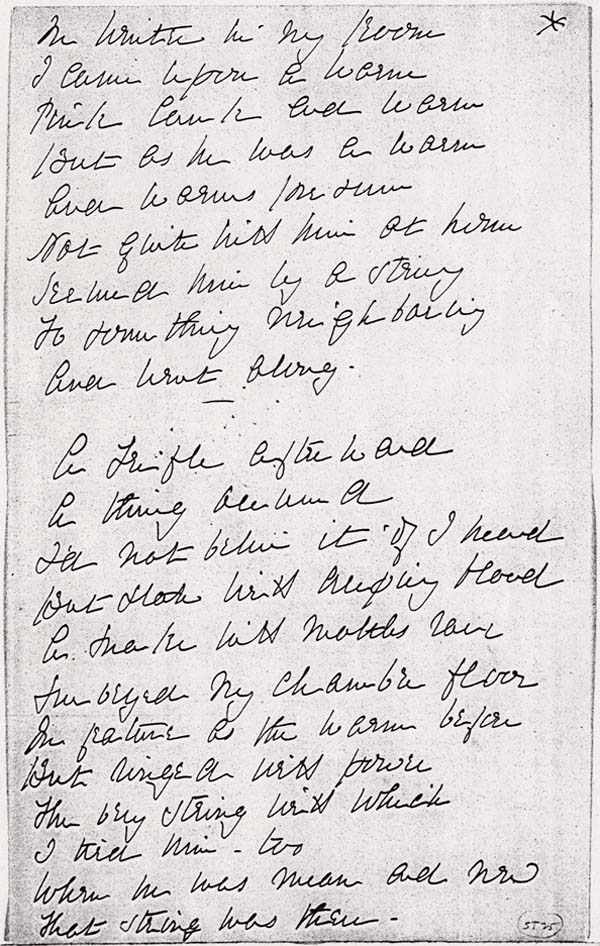 In Winter in my Room
I came upon a Worm
Pink lank and warm
But as he was a worm
And worms presume
Not quite with him at home
Secured him by a string
To something neighboring
And went along -
A Trifle afterward
A thing occurred
I'd not believe it if I heard
But state with creeping blood
A snake with mottles rare
Surveyed my chamber floor
In feature as the worm before
But ringed with power
The very string with which
I tied him - too
When he was mean and new
That string was there -